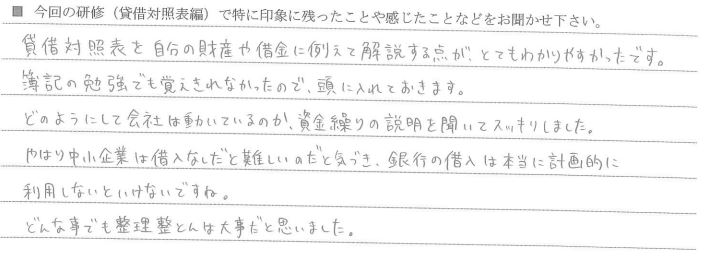 ■ 今回の研修（貸借対照表編）で特に印象に残ったことや感じたことなどをお聞かせ下さい。
貸借対照表を自分の財産や借金に例えて解説する点が、とてもわかりやすかったです。
簿記の勉強でも覚えきれなかったので、頭に入れておきます。
どのようにして会社は動いているのか、資金繰りの説明を聞いてスッキリしました。
やはり中小企業は借入なしだと難しいのだと気づき、銀行の借入は本当に計画的に
利用しないといけないですね。
どんな事でも整理整とんは大事だと思いました。